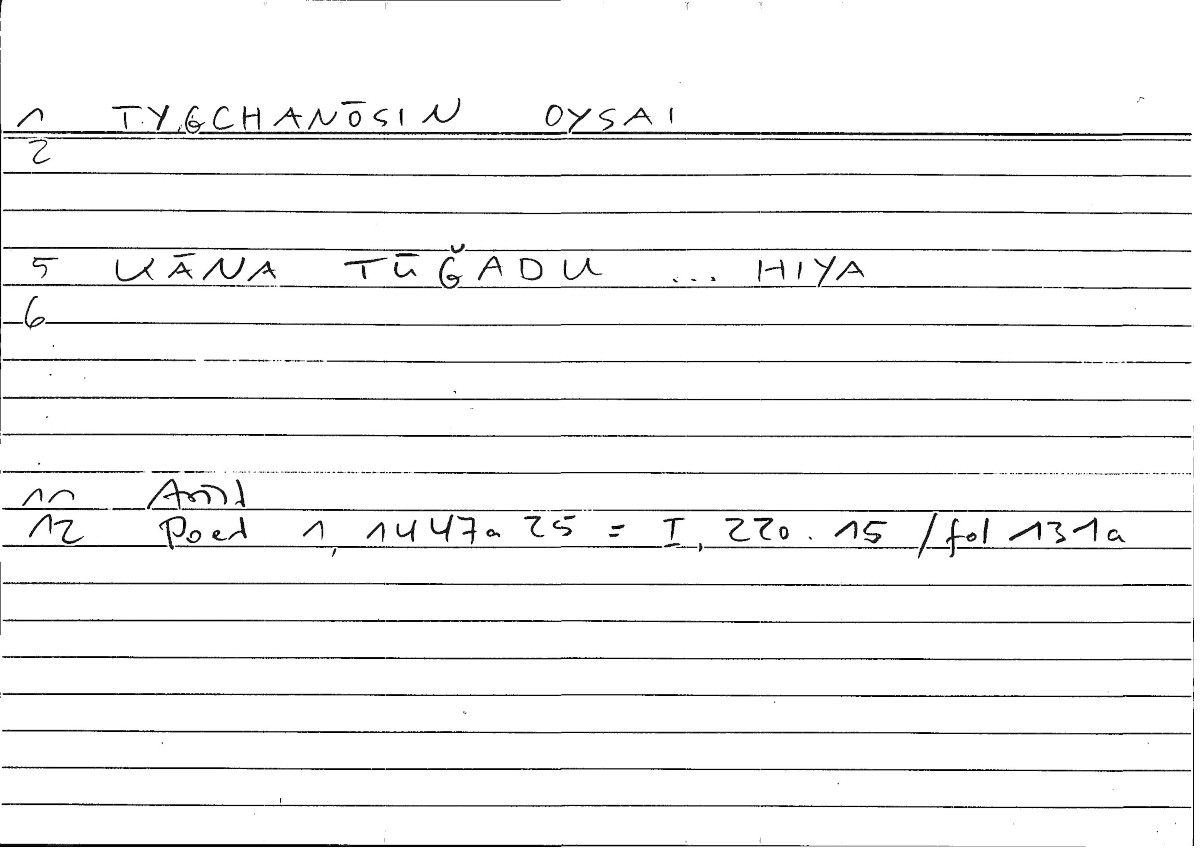 1 TYGCHANŌSIN OYSAI
2
5 KĀNA TŪĞADU ... HIYA
6
11 Arist
12 Poet 1, 1447a 25 = I, 220.15 / fol 131a